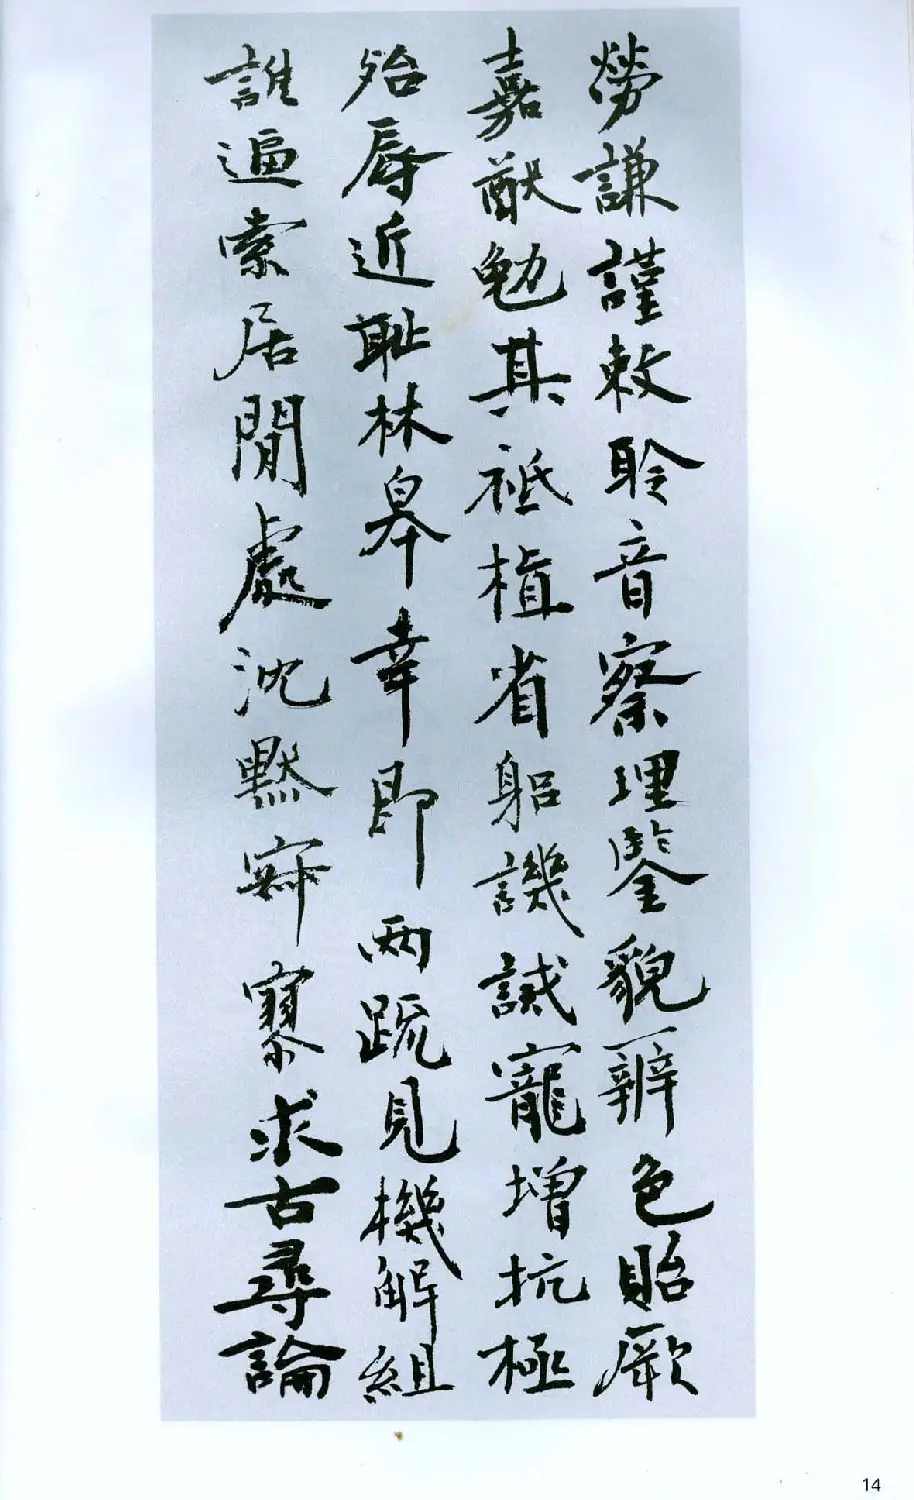 勞謙謹敕聆音察理鑒貌辨色貽厥
嘉猷勉其祗植省躬譏誡寵增抗極
殆辱近恥林皋幸即兩疏見機解組
誰逼索居閒處沈默寂寥求古尋論
14